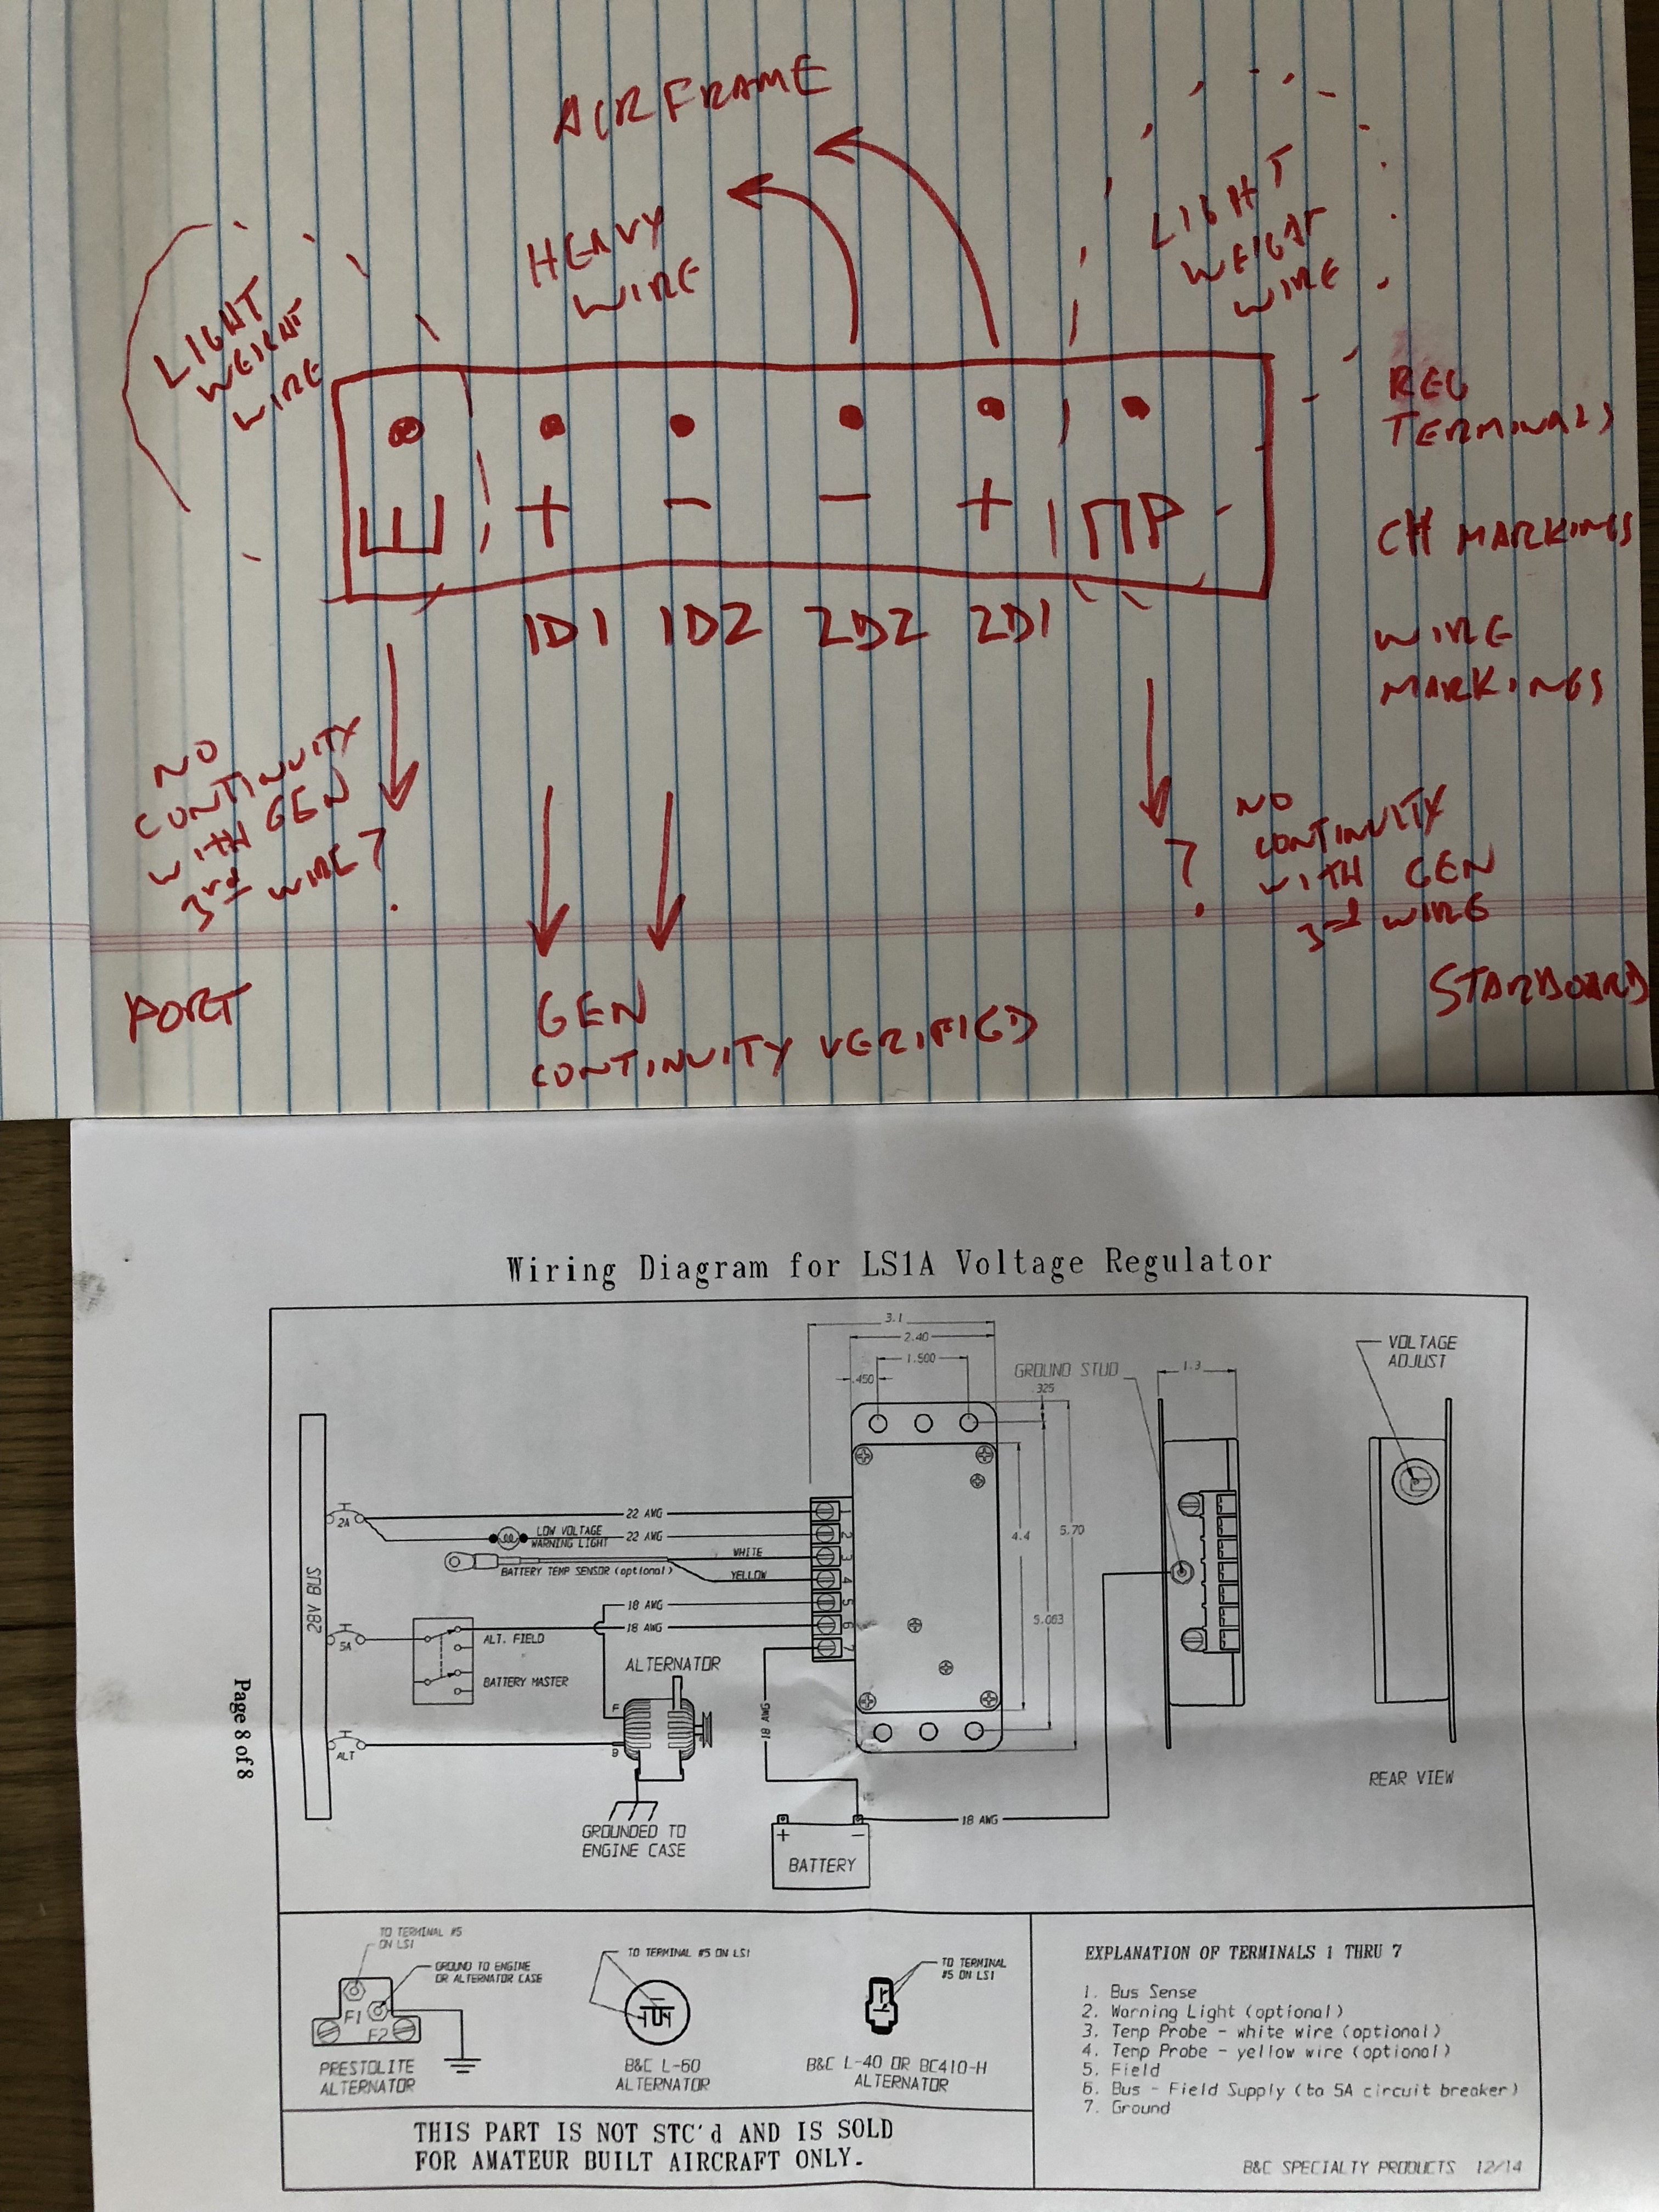 AIRFRAME
HEAVY
WIRE
LIGHT
WEIGHT
WIRE
LIGHT
WEIGHT
WIRE
REG
TERMINALS
Ш + − − + ПР
CH MARKINGS
1D1 1D2 2D2 2D1
WIRE
MARKINGS
NO
CONTINUITY
WITH GEN
3rd WIRE?
?
NO
CONTINUITY
WITH GEN
3rd WIRE
PORT
STARBOARD
GEN
CONTINUITY VERIFIED
Wiring Diagram for LS1A Voltage Regulator
3.1
2.40
1.500
.450
GROUND STUD
.325
1.3
VOLTAGE
ADJUST
2A
22 AWG
LOW VOLTAGE
WARNING LIGHT
22 AWG
2
WHITE
3
BATTERY TEMP SENSOR (optional)
YELLOW
4
4.4
5.70
28V BUS
18 AWG
5
5A
18 AWG
6
7
5.063
ALT. FIELD
BATTERY MASTER
ALTERNATOR
F
B
ALT
18 AWG
GROUNDED TO
ENGINE CASE
+ −
BATTERY
18 AWG
REAR VIEW
Page 8 of 8
TO TERMINAL #5
ON LS1
GROUND TO ENGINE
OR ALTERNATOR CASE
F1
F2
PRESTOLITE
ALTERNATOR
TO TERMINAL #5 ON LS1
B&C L-60
ALTERNATOR
TO TERMINAL
#5 ON LS1
B&C L-40 OR BC410-H
ALTERNATOR
EXPLANATION OF TERMINALS 1 THRU 7
1. Bus Sense
2. Warning Light (optional)
3. Temp Probe - white wire (optional)
4. Temp Probe - yellow wire (optional)
5. Field
6. Bus - Field Supply (to 5A circuit breaker)
7. Ground
THIS PART IS NOT STC'd AND IS SOLD
FOR AMATEUR BUILT AIRCRAFT ONLY.
B&C SPECIALTY PRODUCTS 12/14